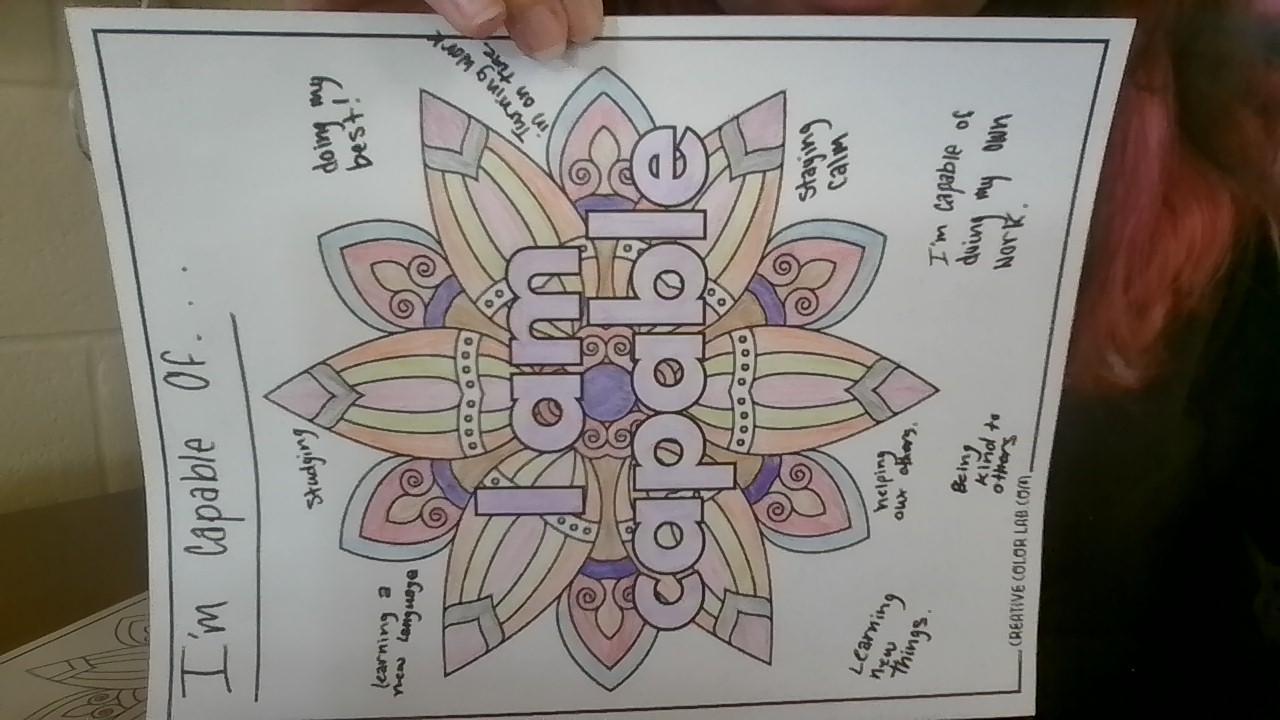 I'm capable of...
learning a
new language
studying
doing my
best!
Turning work
in on time
I am
capable
staying
calm
Learning
new
things.
helping
our others.
Being
kind to
others
I'm capable of
doing my own
work.
CREATIVE COLOR LAB.COM